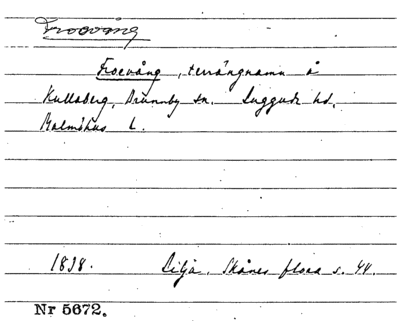 Troevång
Troevång, terrängnamn å
Kullaberg, Brunnby sn. Luggude hd,
Malmöhus L.
1838. Lilja. Skånes flora s. 44.
Nr 5672.